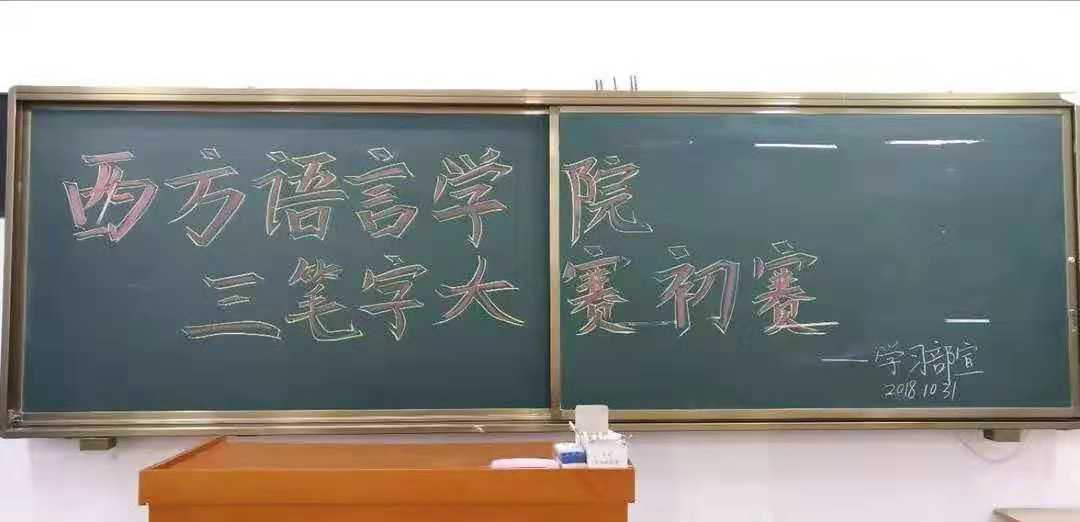 西方语言学院
三笔字大赛初赛
——学习部宣
2018.10.31